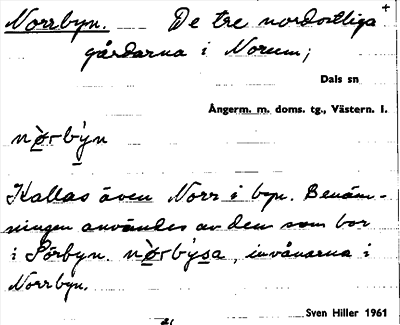 Norrbyn. De tre nordostliga +
gårdarna i Norum;
Dals sn
Ångerm. m. doms. tg., Västern. l.
nò̱rby̱n
Kallas även Norr i byn. Benäm-
ningen användes av den som bor
i Sörbyn. nò̱rby̱sa, invånarna i
Norrbyn.
Sven Hiller 1961